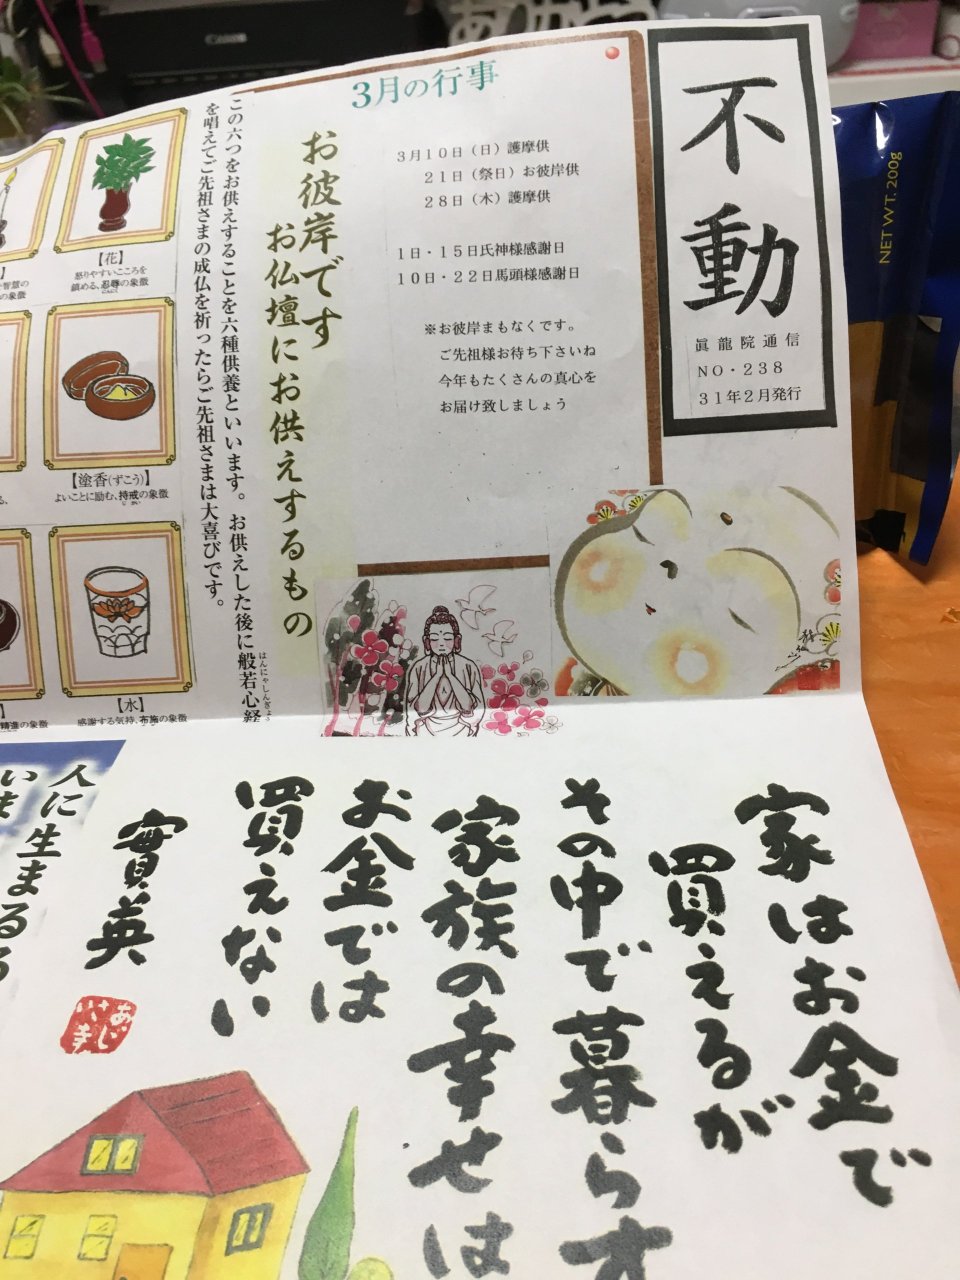 Canon
NET WT. 200g
不動
眞龍院通信
NO・238
31年2月発行
3月の行事
3月10日（日）護摩供
21日（祭日）お彼岸供
28日（木）護摩供
1日・15日氏神様感謝日
10日・22日馬頭様感謝日
※お彼岸まもなくです。
ご先祖様お待ち下さいね
今年もたくさんの真心を
お届け致しましょう
お彼岸です
お仏壇にお供えするもの
この六つをお供えすることを六種供養といいます。お供えした後に般若心経
はんにゃしんぎょう
を唱えてご先祖さまの成仏を祈ったらご先祖さまは大喜びです。
【花】
怒りやすいこころを
鎮める、忍辱の象徴
智慧の
の象徴
【塗香(ずこう)】
よいことに励む、持戒の象徴
【水】
感謝する気持、布施の象徴
精進の象徴
家はお金で
買えるが
その中で暮らす
家族の幸せは
お金では
買えない
實英
人に生まるる